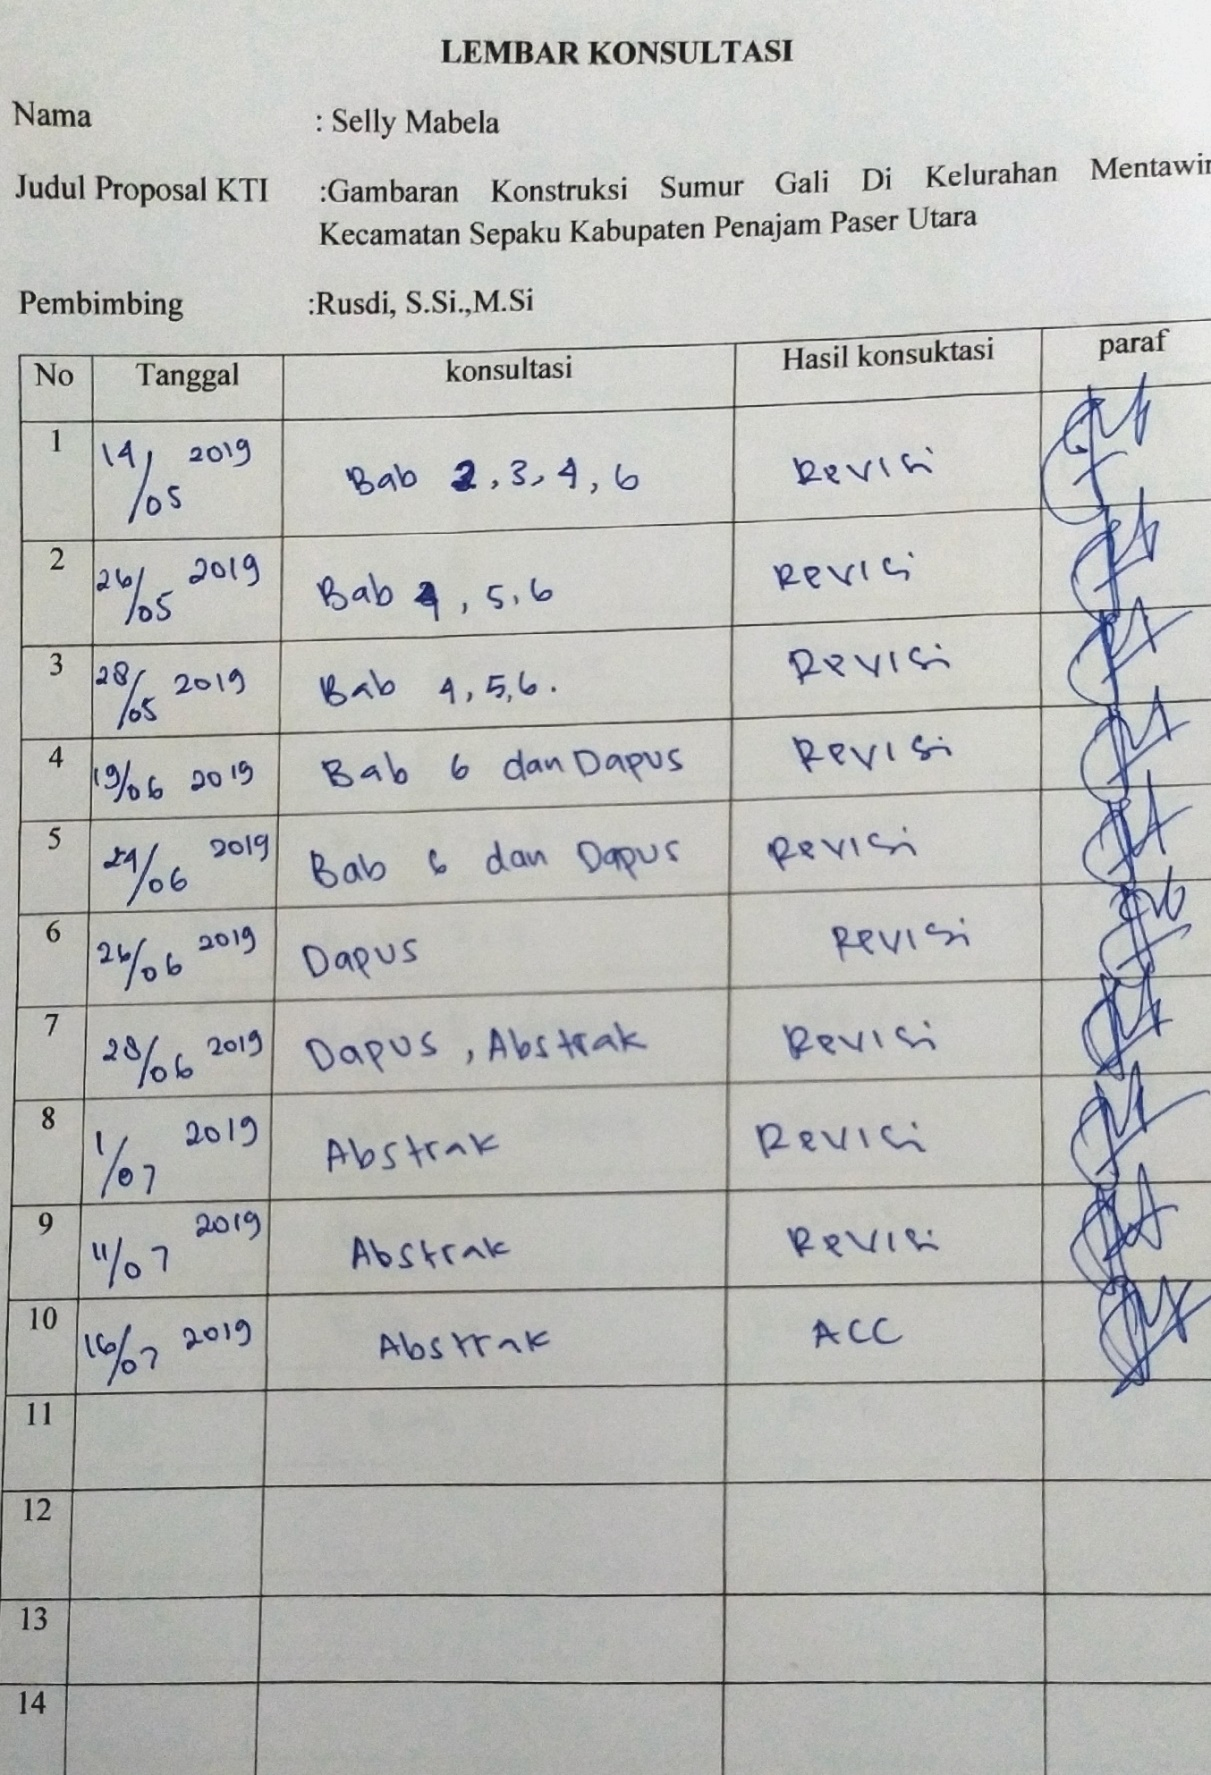 LEMBAR KONSULTASI
Nama : Selly Mabela
Judul Proposal KTI :Gambaran Konstruksi Sumur Gali Di Kelurahan Mentawir
Kecamatan Sepaku Kabupaten Penajam Paser Utara
Pembimbing :Rusdi, S.Si.,M.Si
No Tanggal konsultasi Hasil konsuktasi paraf
1 14/05 2019 Bab 2, 3, 4, 6 Revisi
2 26/05 2019 Bab 4, 5, 6 Revisi
3 28/05 2019 Bab 4, 5, 6. Revisi
4 19/06 2019 Bab 6 dan Dapus Revisi
5 24/06 2019 Bab 6 dan Dapus Revisi
6 26/06 2019 Dapus Revisi
7 28/06 2019 Dapus, Abstrak Revisi
8 1/07 2019 Abstrak Revisi
9 11/07 2019 Abstrak Revisi
10 16/07 2019 Abstrak ACC
11
12
13
14